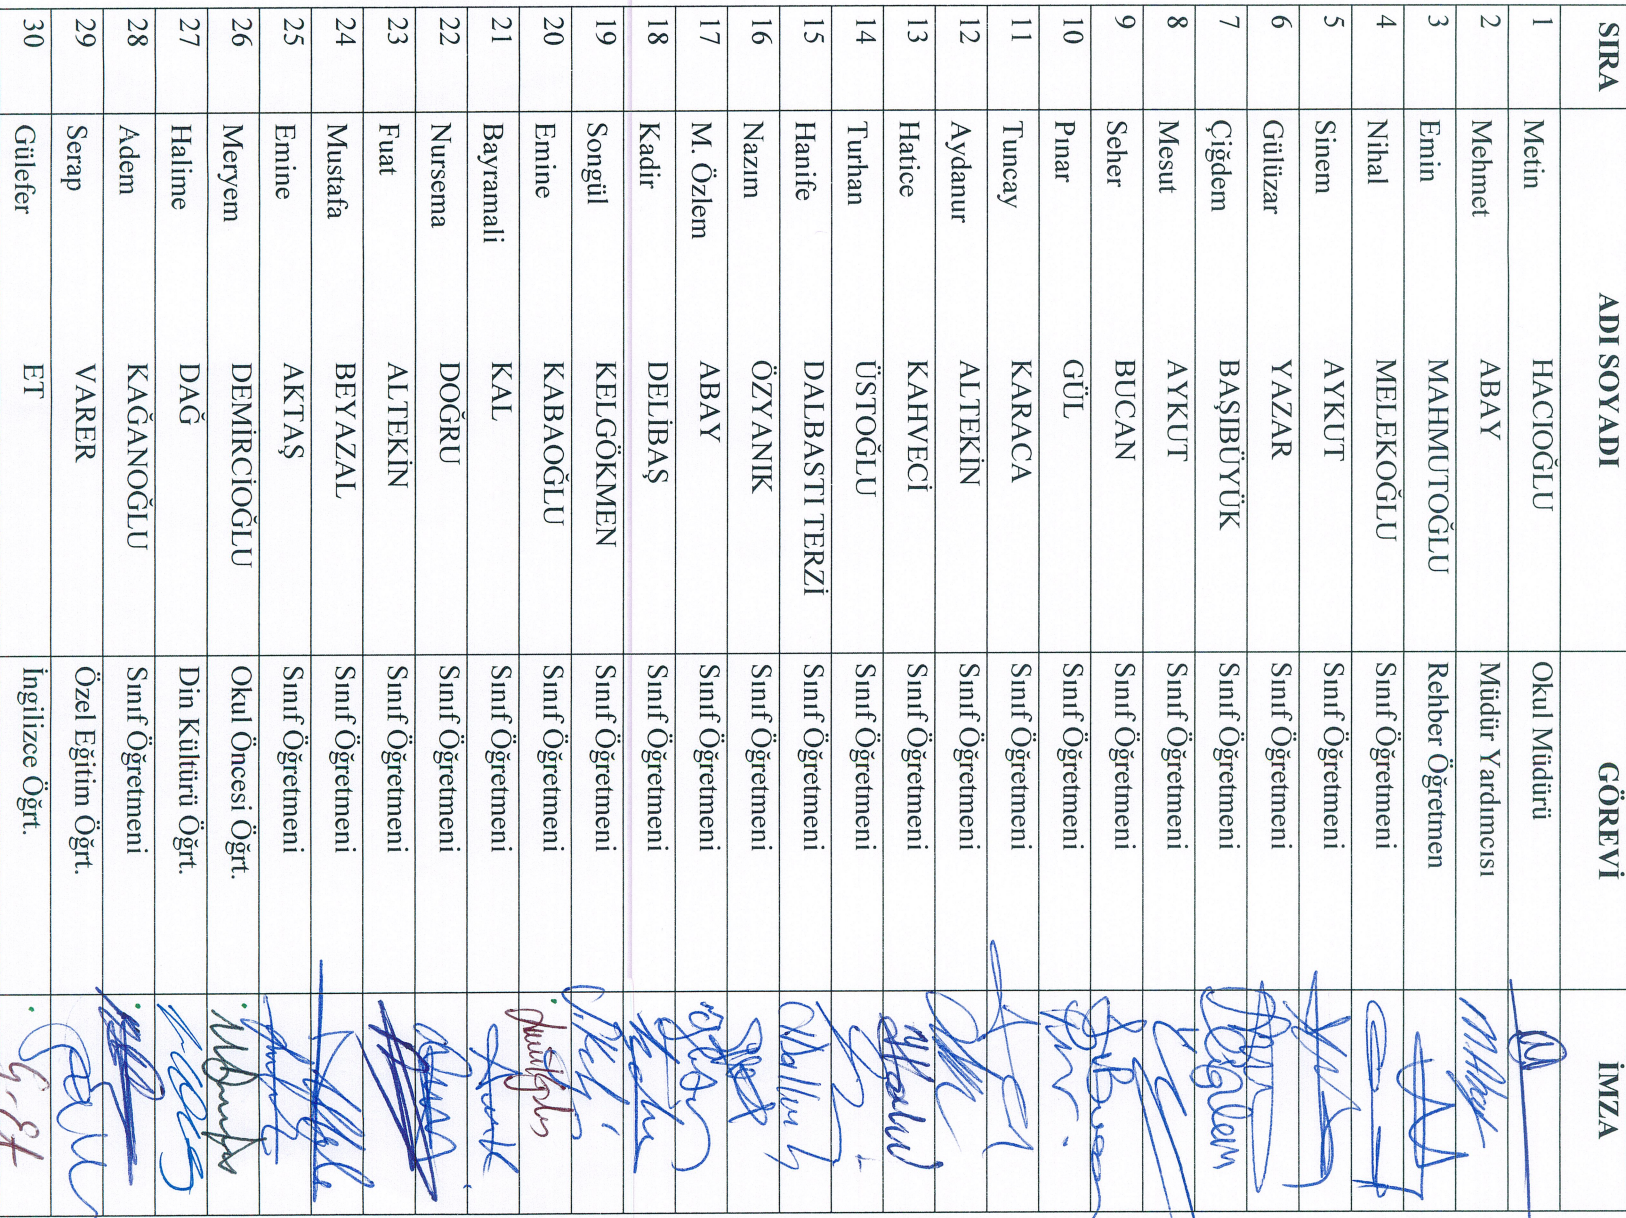 SIRA ADI SOYADI GÖREVİ İMZA
1 Metin HACIOĞLU Okul Müdürü
2 Mehmet ABAY Müdür Yardımcısı M.Abay
3 Emin MAHMUTOĞLU Rehber Öğretmen
4 Nihal MELEKOĞLU Sınıf Öğretmeni
5 Sinem AYKUT Sınıf Öğretmeni
6 Gülüzar YAZAR Sınıf Öğretmeni
7 Çiğdem BAŞIBÜYÜK Sınıf Öğretmeni
8 Mesut AYKUT Sınıf Öğretmeni
9 Seher BUCAN Sınıf Öğretmeni
10 Pınar GÜL Sınıf Öğretmeni
11 Tuncay KARACA Sınıf Öğretmeni
12 Aydanur ALTEKİN Sınıf Öğretmeni
13 Hatice KAHVECİ Sınıf Öğretmeni
14 Turhan ÜSTOĞLU Sınıf Öğretmeni
15 Hanife DALBASTI TERZİ Sınıf Öğretmeni
16 Nazım ÖZYANIK Sınıf Öğretmeni
17 M. Özlem ABAY Sınıf Öğretmeni
18 Kadir DELİBAŞ Sınıf Öğretmeni
19 Songül KELGÖKMEN Sınıf Öğretmeni
20 Emine KABAOĞLU Sınıf Öğretmeni
21 Bayramali KAL Sınıf Öğretmeni
22 Nursema DOĞRU Sınıf Öğretmeni
23 Fuat ALTEKİN Sınıf Öğretmeni
24 Mustafa BEYAZAL Sınıf Öğretmeni
25 Emine AKTAŞ Sınıf Öğretmeni
26 Meryem DEMİRCİOĞLU Okul Öncesi Öğrt.
27 Halime DAĞ Din Kültürü Öğrt.
28 Adem KAĞANOĞLU Sınıf Öğretmeni
29 Serap VARER Özel Eğitim Öğrt.
30 Gülefer ET İngilizce Öğrt. G.Et